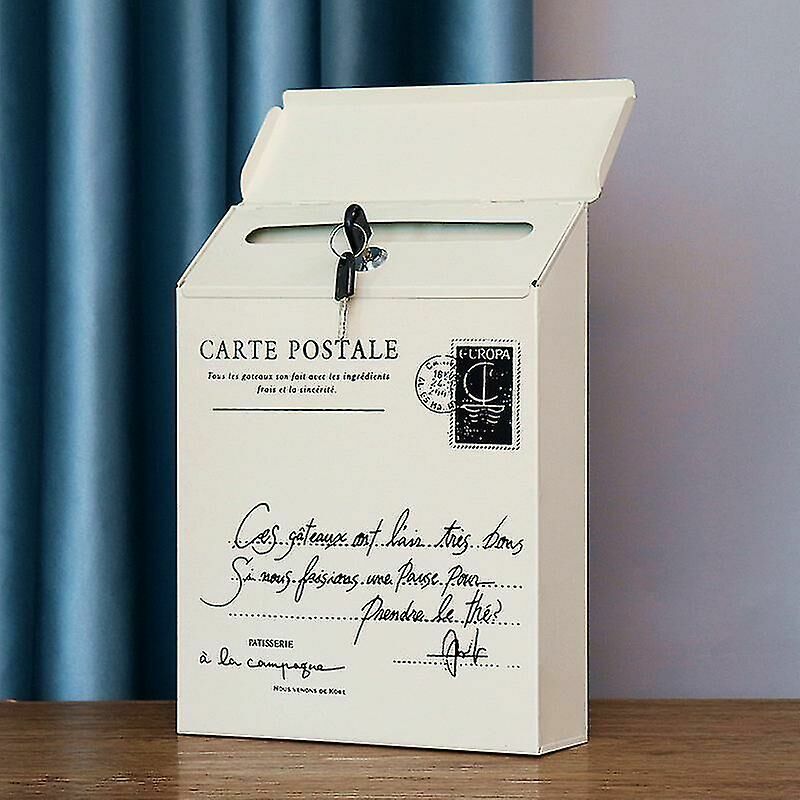 CARTE POSTALE
Tous les gateaux son fait avec les ingrédients
frais et la sincérité.
EUROPA
Ces gâteaux ont l'air très bons
Si nous faisions une Pause Pour
Prendre le thé?
PATISSERIE
à la campagne
NOUS VENONS DE KOBE